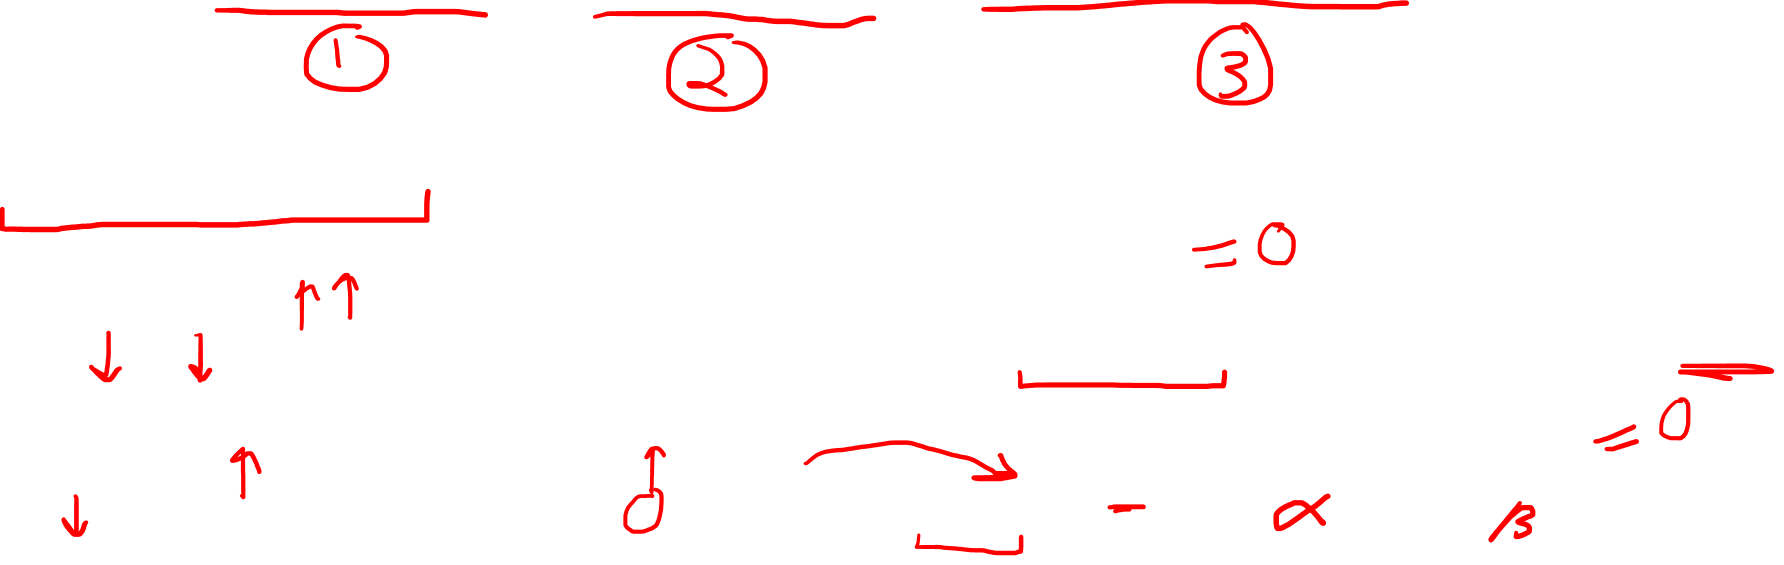 ① ② ③
= 0
↑ ↑
↓ ↓
= 0
↑
↓ 0 - α β